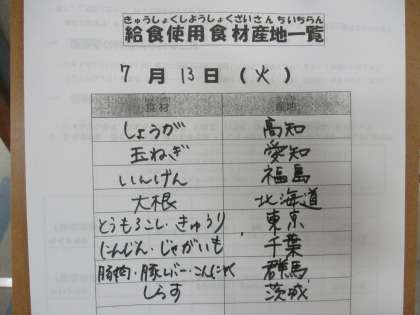 きゅうしょくしようしょくざいさんちいちらん
給食使用食材産地一覧
7月13日(火)
食材 産地
しょうが 高知
玉ねぎ 愛知
いんげん 福島
大根 北海道
とうもろこし・きゅうり 東京
にんじん・じゃがいも 千葉
豚肉・豚レバー・こんにゃく 群馬
しらす 茨城